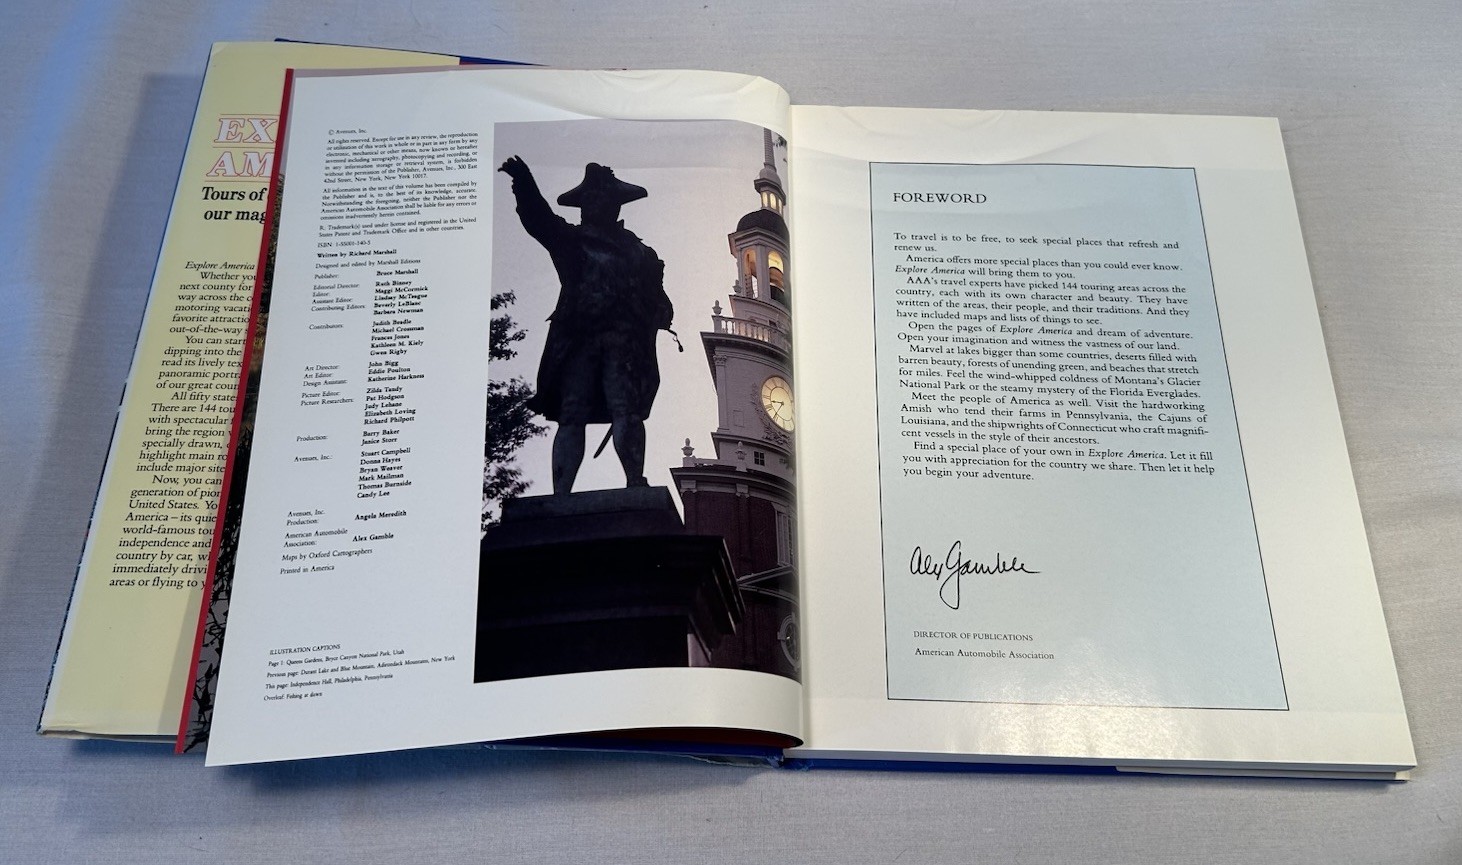 EX
AM
Tours of
our mag
Explore America
Whether you
next county for
way across the c
motoring vacati
favorite attractio
out-of-the-way s
You can start
dipping into the
read its lively tex
panoramic portra
of our great coun
All fifty state
There are 144 tou
with spectacular
bring the region
specially drawn,
highlight main ro
include major site
Now, you can
generation of pion
United States. Yo
America – its quie
world-famous tou
independence and
country by car, w
immediately drivi
areas or flying to y
© Avenues, Inc.
All rights reserved. Except for use in any review, the reproduction
or utilization of this work in whole or in part in any form by any
electronic, mechanical or other means, now known or hereafter
invented including xerography, photocopying and recording, or
in any information storage or retrieval system, is forbidden
without the permission of the Publisher, Avenues, Inc., 300 East
42nd Street, New York, New York 10017.
All information in the text of this volume has been compiled by
the Publisher and is, to the best of its knowledge, accurate.
Notwithstanding the foregoing, neither the Publisher nor the
American Automobile Association shall be liable for any errors or
omissions inadvertently herein contained.
R. Trademark(s) used under license and registered in the United
States Patent and Trademark Office and in other countries.
ISBN: 1-55001-340-3
Written by Richard Marshall
Designed and edited by Marshall Editions
Publisher: Bruce Marshall
Editorial Director: Ruth Binney
Editor: Maggi McCormick
Assistant Editor: Lindsay McTeague
Contributing Editors: Beverly LeBlanc
Barbara Newman
Contributors: Judith Beadle
Michael Crossman
Frances Jones
Kathleen M. Kiely
Gwen Rigby
Art Director: John Bigg
Art Editor: Eddie Poulton
Design Assistant: Katherine Harkness
Picture Editor: Zilda Tandy
Picture Researchers: Pat Hodgson
Judy Lehane
Elizabeth Loving
Richard Philpott
Production: Barry Baker
Janice Storr
Avenues, Inc.: Stuart Campbell
Donna Hayes
Bryan Weaver
Mark Mailman
Thomas Burnside
Candy Lee
Avenues, Inc.
Production: Angela Meredith
American Automobile
Association: Alex Gamble
Maps by Oxford Cartographers
Printed in America
ILLUSTRATION CAPTIONS
Page 1: Queens Gardens, Bryce Canyon National Park, Utah
Previous page: Durant Lake and Blue Mountain, Adirondack Mountains, New York
This page: Independence Hall, Philadelphia, Pennsylvania
Overleaf: Fishing at dawn
FOREWORD
To travel is to be free, to seek special places that refresh and
renew us.
America offers more special places than you could ever know.
Explore America will bring them to you.
AAA's travel experts have picked 144 touring areas across the
country, each with its own character and beauty. They have
written of the areas, their people, and their traditions. And they
have included maps and lists of things to see.
Open the pages of Explore America and dream of adventure.
Open your imagination and witness the vastness of our land.
Marvel at lakes bigger than some countries, deserts filled with
barren beauty, forests of unending green, and beaches that stretch
for miles. Feel the wind-whipped coldness of Montana's Glacier
National Park or the steamy mystery of the Florida Everglades.
Meet the people of America as well. Visit the hardworking
Amish who tend their farms in Pennsylvania, the Cajuns of
Louisiana, and the shipwrights of Connecticut who craft magnifi-
cent vessels in the style of their ancestors.
Find a special place of your own in Explore America. Let it fill
you with appreciation for the country we share. Then let it help
you begin your adventure.
Alex Gamble
DIRECTOR OF PUBLICATIONS
American Automobile Association